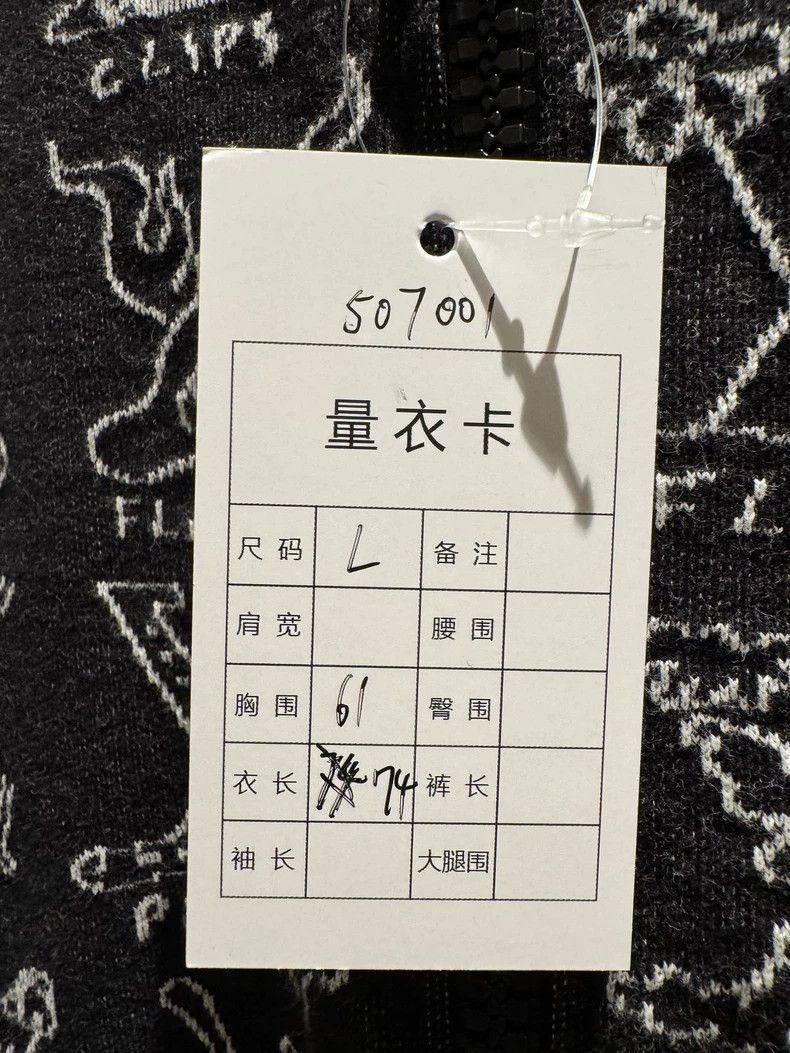 CLIPS
507001
量衣卡
尺码 L 备注
肩宽 腰围
胸围 61 臀围
衣长 74 裤长
袖长 大腿围
FL